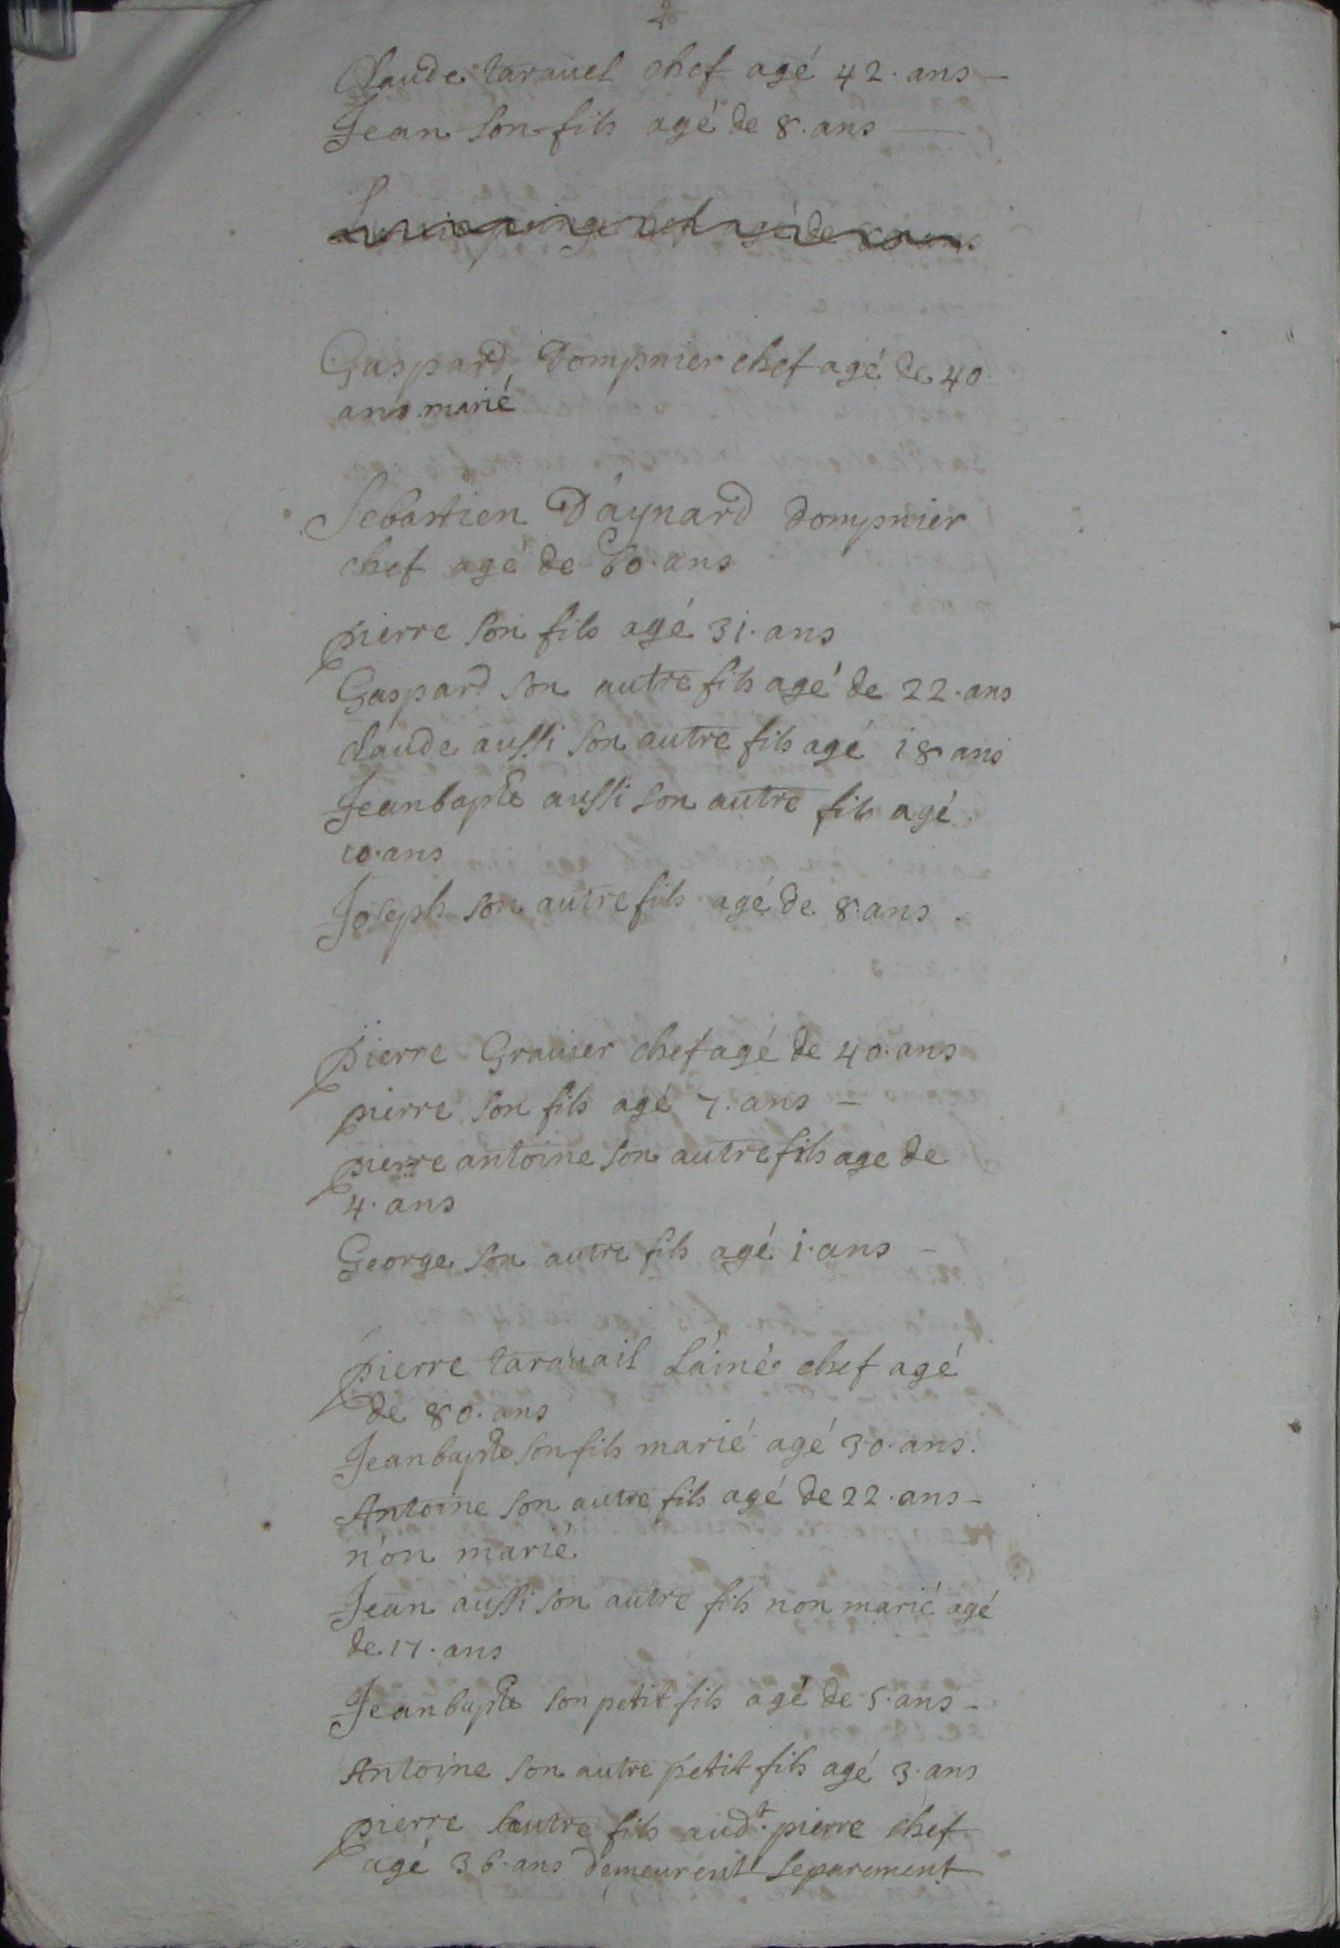 Claude taravel chef agé 42. ans
Jean son fils agé de 8. ans
Gaspard Dompnier chef agé de 40.
ans marié
Sebastien Daynard dompnier
chef agé de 60. ans
pierre son fils agé 31. ans
Gaspard son autre fils agé de 22. ans
claude aussi son autre fils agé 18 ans
Jeanbapte aussi son autre fils agé
10. ans
Joseph son autre fils agé de 8. ans.
pierre Grauier chef agé de 40. ans
pierre son fils agé 7. ans –
pierre antoine son autre fils age de
4. ans
George son autre fils agé 1. ans –
pierre tarauail L'ainé chef agé
de 80. ans
Jeanbapte son fils marié agé 30. ans.
Antoine son autre fils agé de 22. ans –
non marié
Jean aussi son autre fils non marié agé
de 17. ans
Jeanbapte son petit fils agé de 5. ans –
Antoine son autre petit fils agé 3. ans
pierre lautre fils audt. pierre chef
agé 36. ans demeurent separement